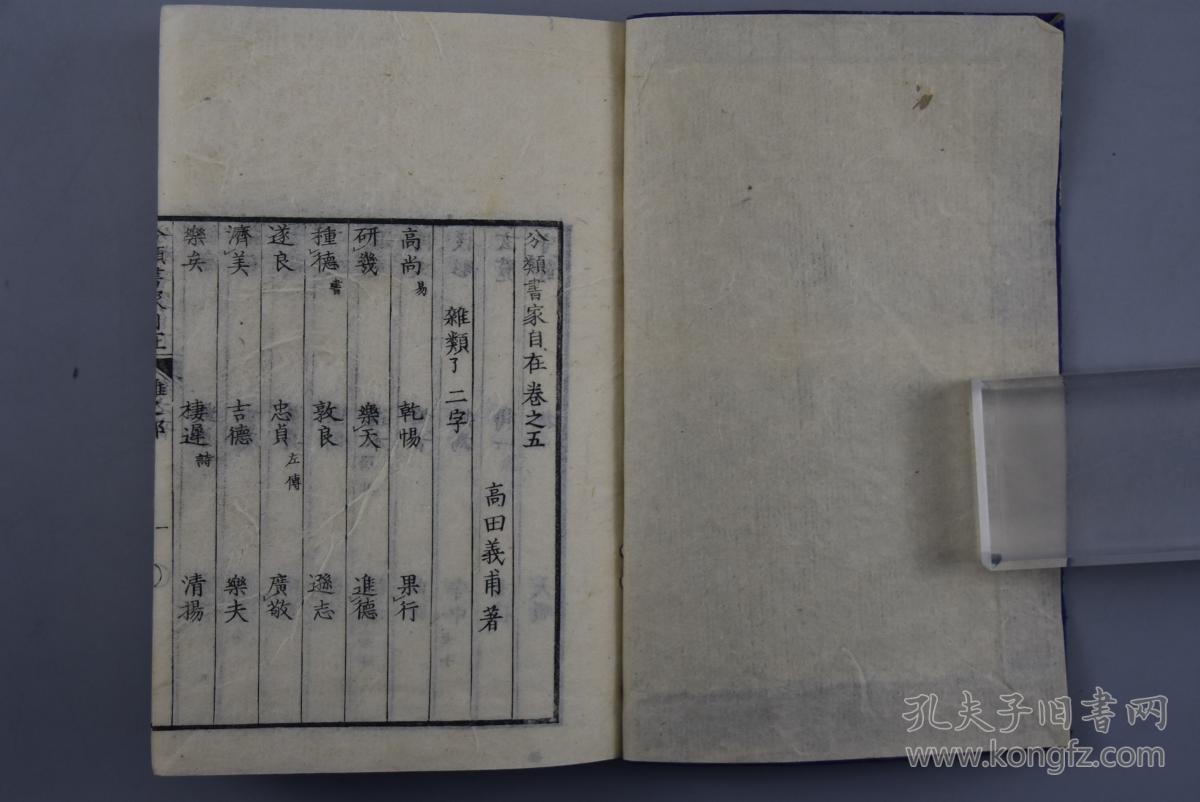 分類書家自在卷之五
高田義甫著
雜類了 二字
高尚 易 乾惕 果行
研幾 樂天 進德
種德 書 敦良 遜志
遂良 忠貞 左傳 廣敬
濟美 吉德 樂夫
樂矣 棲遲 詩 清揚
孔夫子旧书网
www.kongfz.com